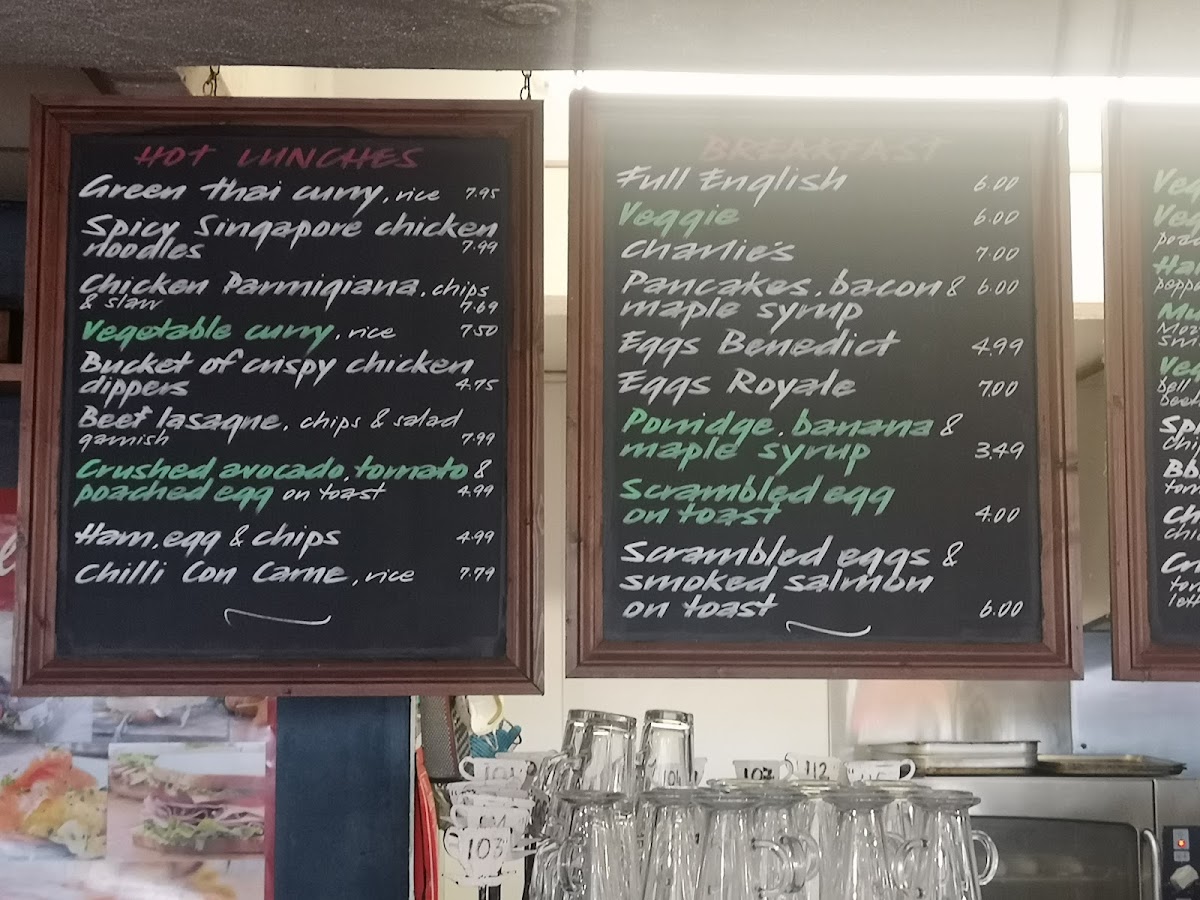 HOT LUNCHES
Green thai curry, rice 7.95
Spicy Singapore chicken
noodles 7.99
Chicken Parmigiana, chips
& slaw 7.69
Vegetable curry, rice 7.50
Bucket of crispy chicken
dippers 4.75
Beef lasagne, chips & salad
garnish 7.99
Crushed avocado, tomato &
poached egg on toast 4.99
Ham, egg & chips 4.99
Chilli Con Carne, rice 7.79
BREAKFAST
Full English 6.00
Veggie 6.00
Charlie's 7.00
Pancakes, bacon & 6.00
maple syrup
Eggs Benedict 4.99
Eggs Royale 7.00
Porridge, banana &
maple syrup 3.49
Scrambled egg
on toast 4.00
Scrambled eggs &
smoked salmon
on toast 6.00
107
112
103